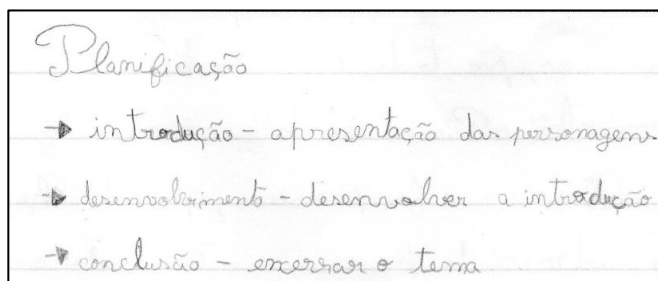 Planificação
→ introdução - apresentação das personagens
→ desenvolvimento - desenvolver a introdução
→ conclusão - encerrar o tema